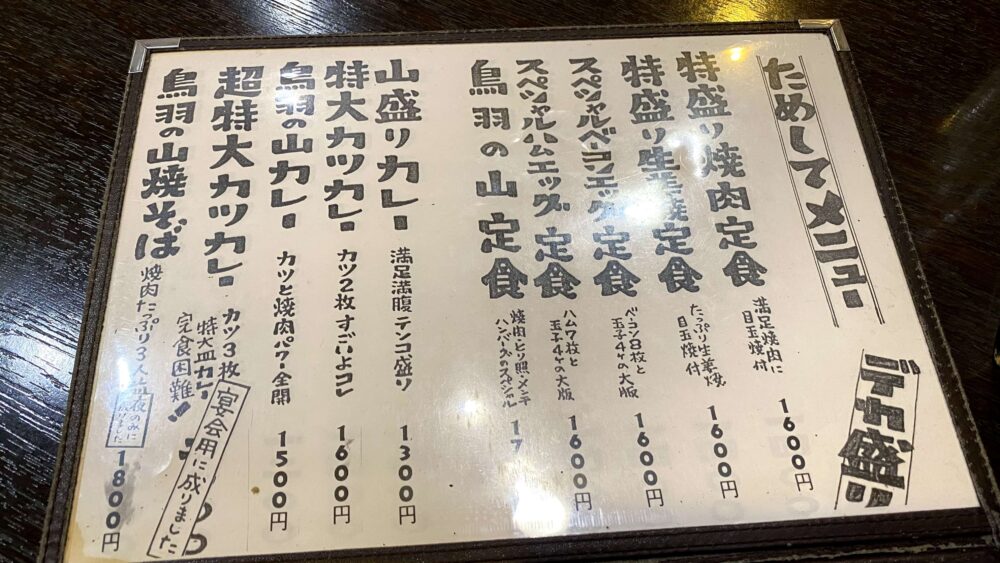 ためしてメニュー
デカ盛り
特盛り焼肉定食
満足焼肉に
目玉焼付
1600円
特盛り生姜焼定食
たっぷり生姜焼
目玉焼付
1600円
スペシャルベーコンエッグ定食
ベーコン8枚と
玉子4ヶの大版
1600円
スペシャルハムエッグ定食
ハム7枚と
玉子4ヶの大版
1600円
鳥羽の山定食
焼肉・とり照・メンチ
ハンバーグのスペシャル
17
山盛りカレー
満足満腹テンコ盛り
1300円
特大カツカレー
カツ2枚すごいよコレ
1600円
鳥羽の山カレー
カツと焼肉パワー全開
1500円
超特大カツカレー
カツ3枚
特大皿カレー
完食困難!
宴会用に成りました
鳥羽の山焼そば
焼肉たっぷり3人
夜のみに
成りました
1800円